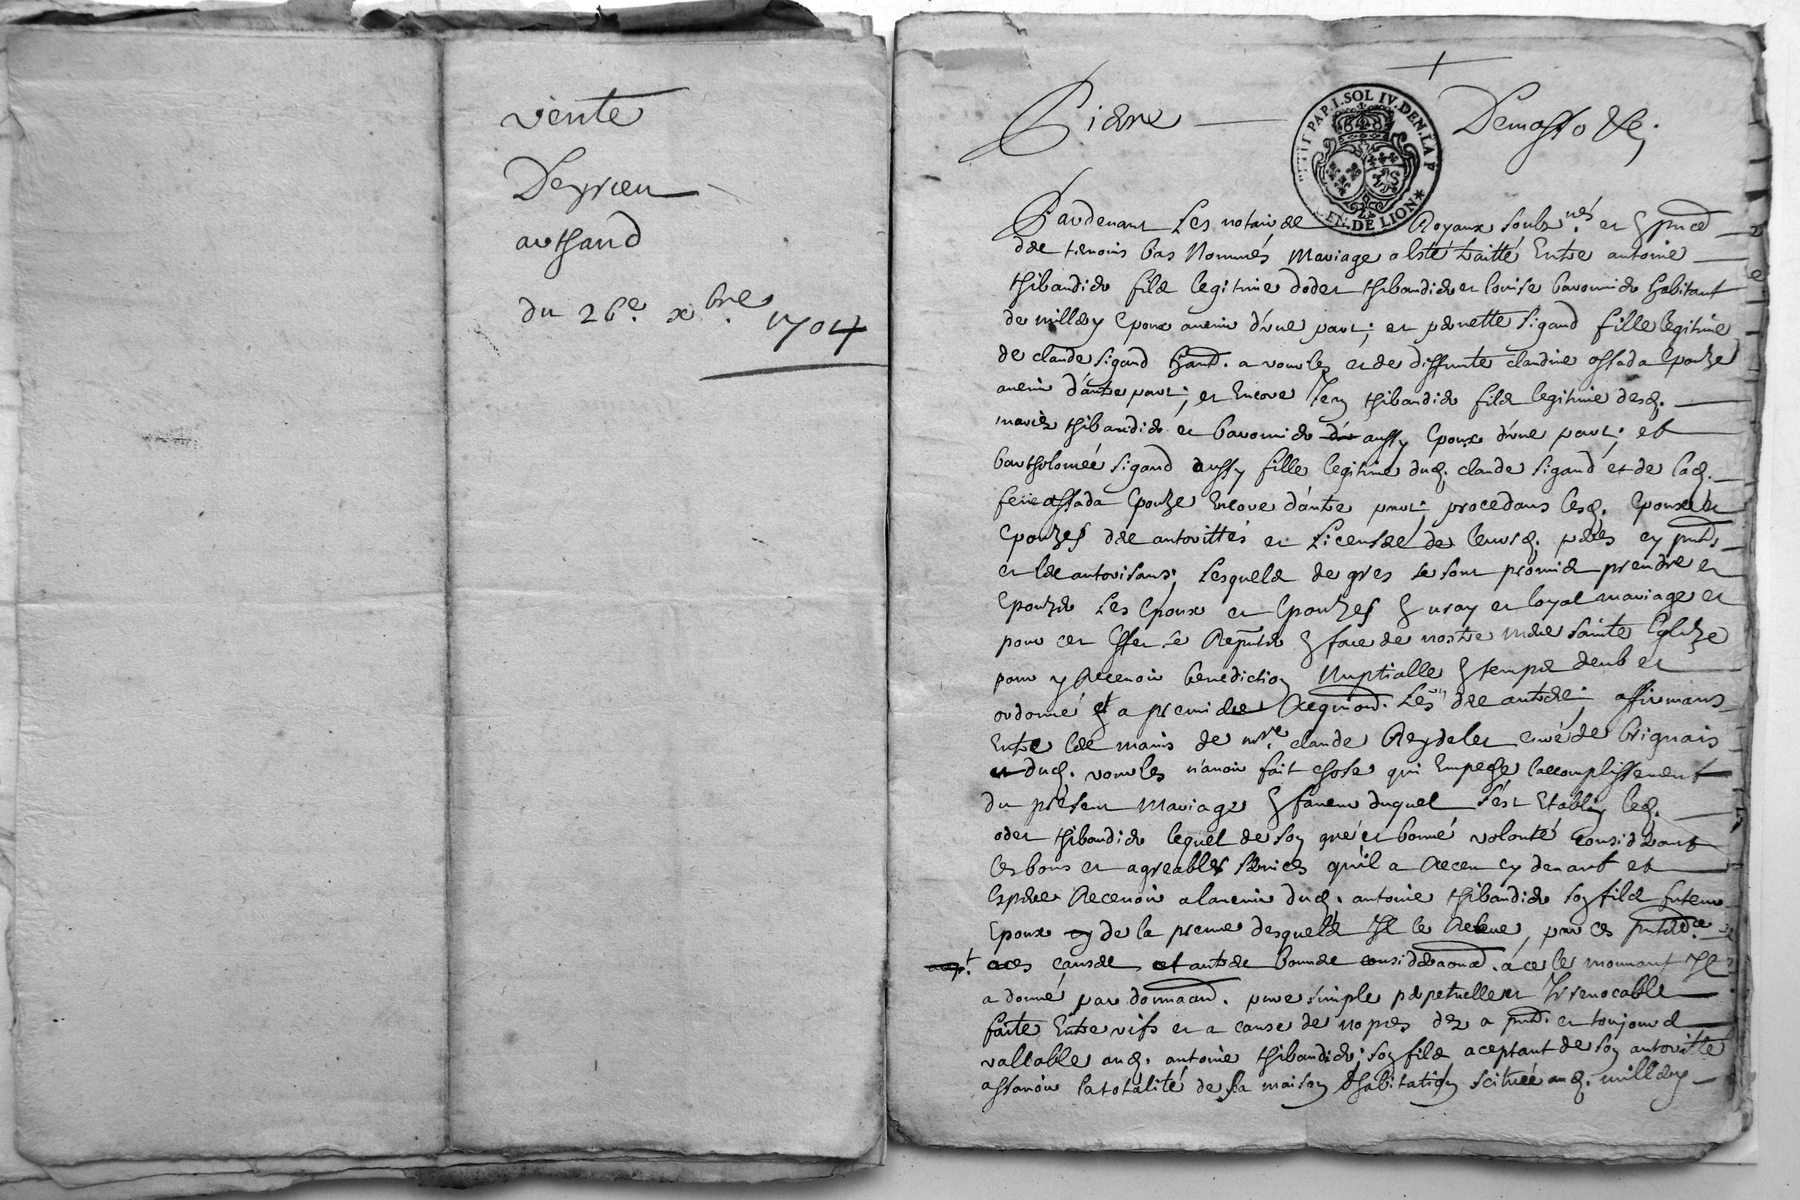 vente
Deyrieu
arthaud
du 26e. xbre. 1704
PAP. I. SOL IV. DEN. LA F
EN. DE LION
Pardevant Les notaires Royaux soubz.nés et
des temoins bas Nommés Mariage a esté traitté Entre antoine
thibaudier fils legitime doder thibaudier et louise habitant
de millery Epoux avenir d'une part; et pernette sigaud fille legitime
de claude sigaud habit. a vourles et de deffunte claudine assada Epouze
avenir d'autre part; et Encore thibaudier fils legitime desd.
mariés thibaudier et aussy Epoux d'une part; et
bartholomée sigaud aussy fille legitime dud. claude sigaud et de lad.
feüe assada Epouze Encore d'autre part; procedans lesd. Epoux et
Epouzes des autorittés et Licenses de leursd. peres cy pnts
et les autorisans; Lesquels de gres se sont promis prendre et
Epouzer Les Epoux et Epouzes vray et loyal mariage et
pour cet effet se face de nostre mere sainte Eglize
pour y Recevoir benediction Nuptialle temps deub et
ordonné a premiere Requiond. Les des autres affirmans
Entre les mains de mre. claude Reydelet curé de brignais
et dud. vourles n'avoir fait chose qui Empeche l'accomplissement
du présent Mariage faveur duquel s'est Etably led.
oder thibaudier lequel de son gré et bonne volonté considerant
les bons et agreables services qu'il a Receu cy devant et
Espere Recevoir alavenir dud. antoine thibaudier son fils futeur
Epoux de la preuve desquels Il le Releve, par ces
aces causes et autres bonnes consideraond. a ce le mouvant Il
a donné par donnaond. pure simple perpetuelle et Irrevocable
faite Entre vifs et a cause de nopces dez a pnt. et toujours
vallable aud. antoine thibaudier son fils aceptant de son autoritté
assavoir la totalité de sa maison d'habitation scituée aud. millery